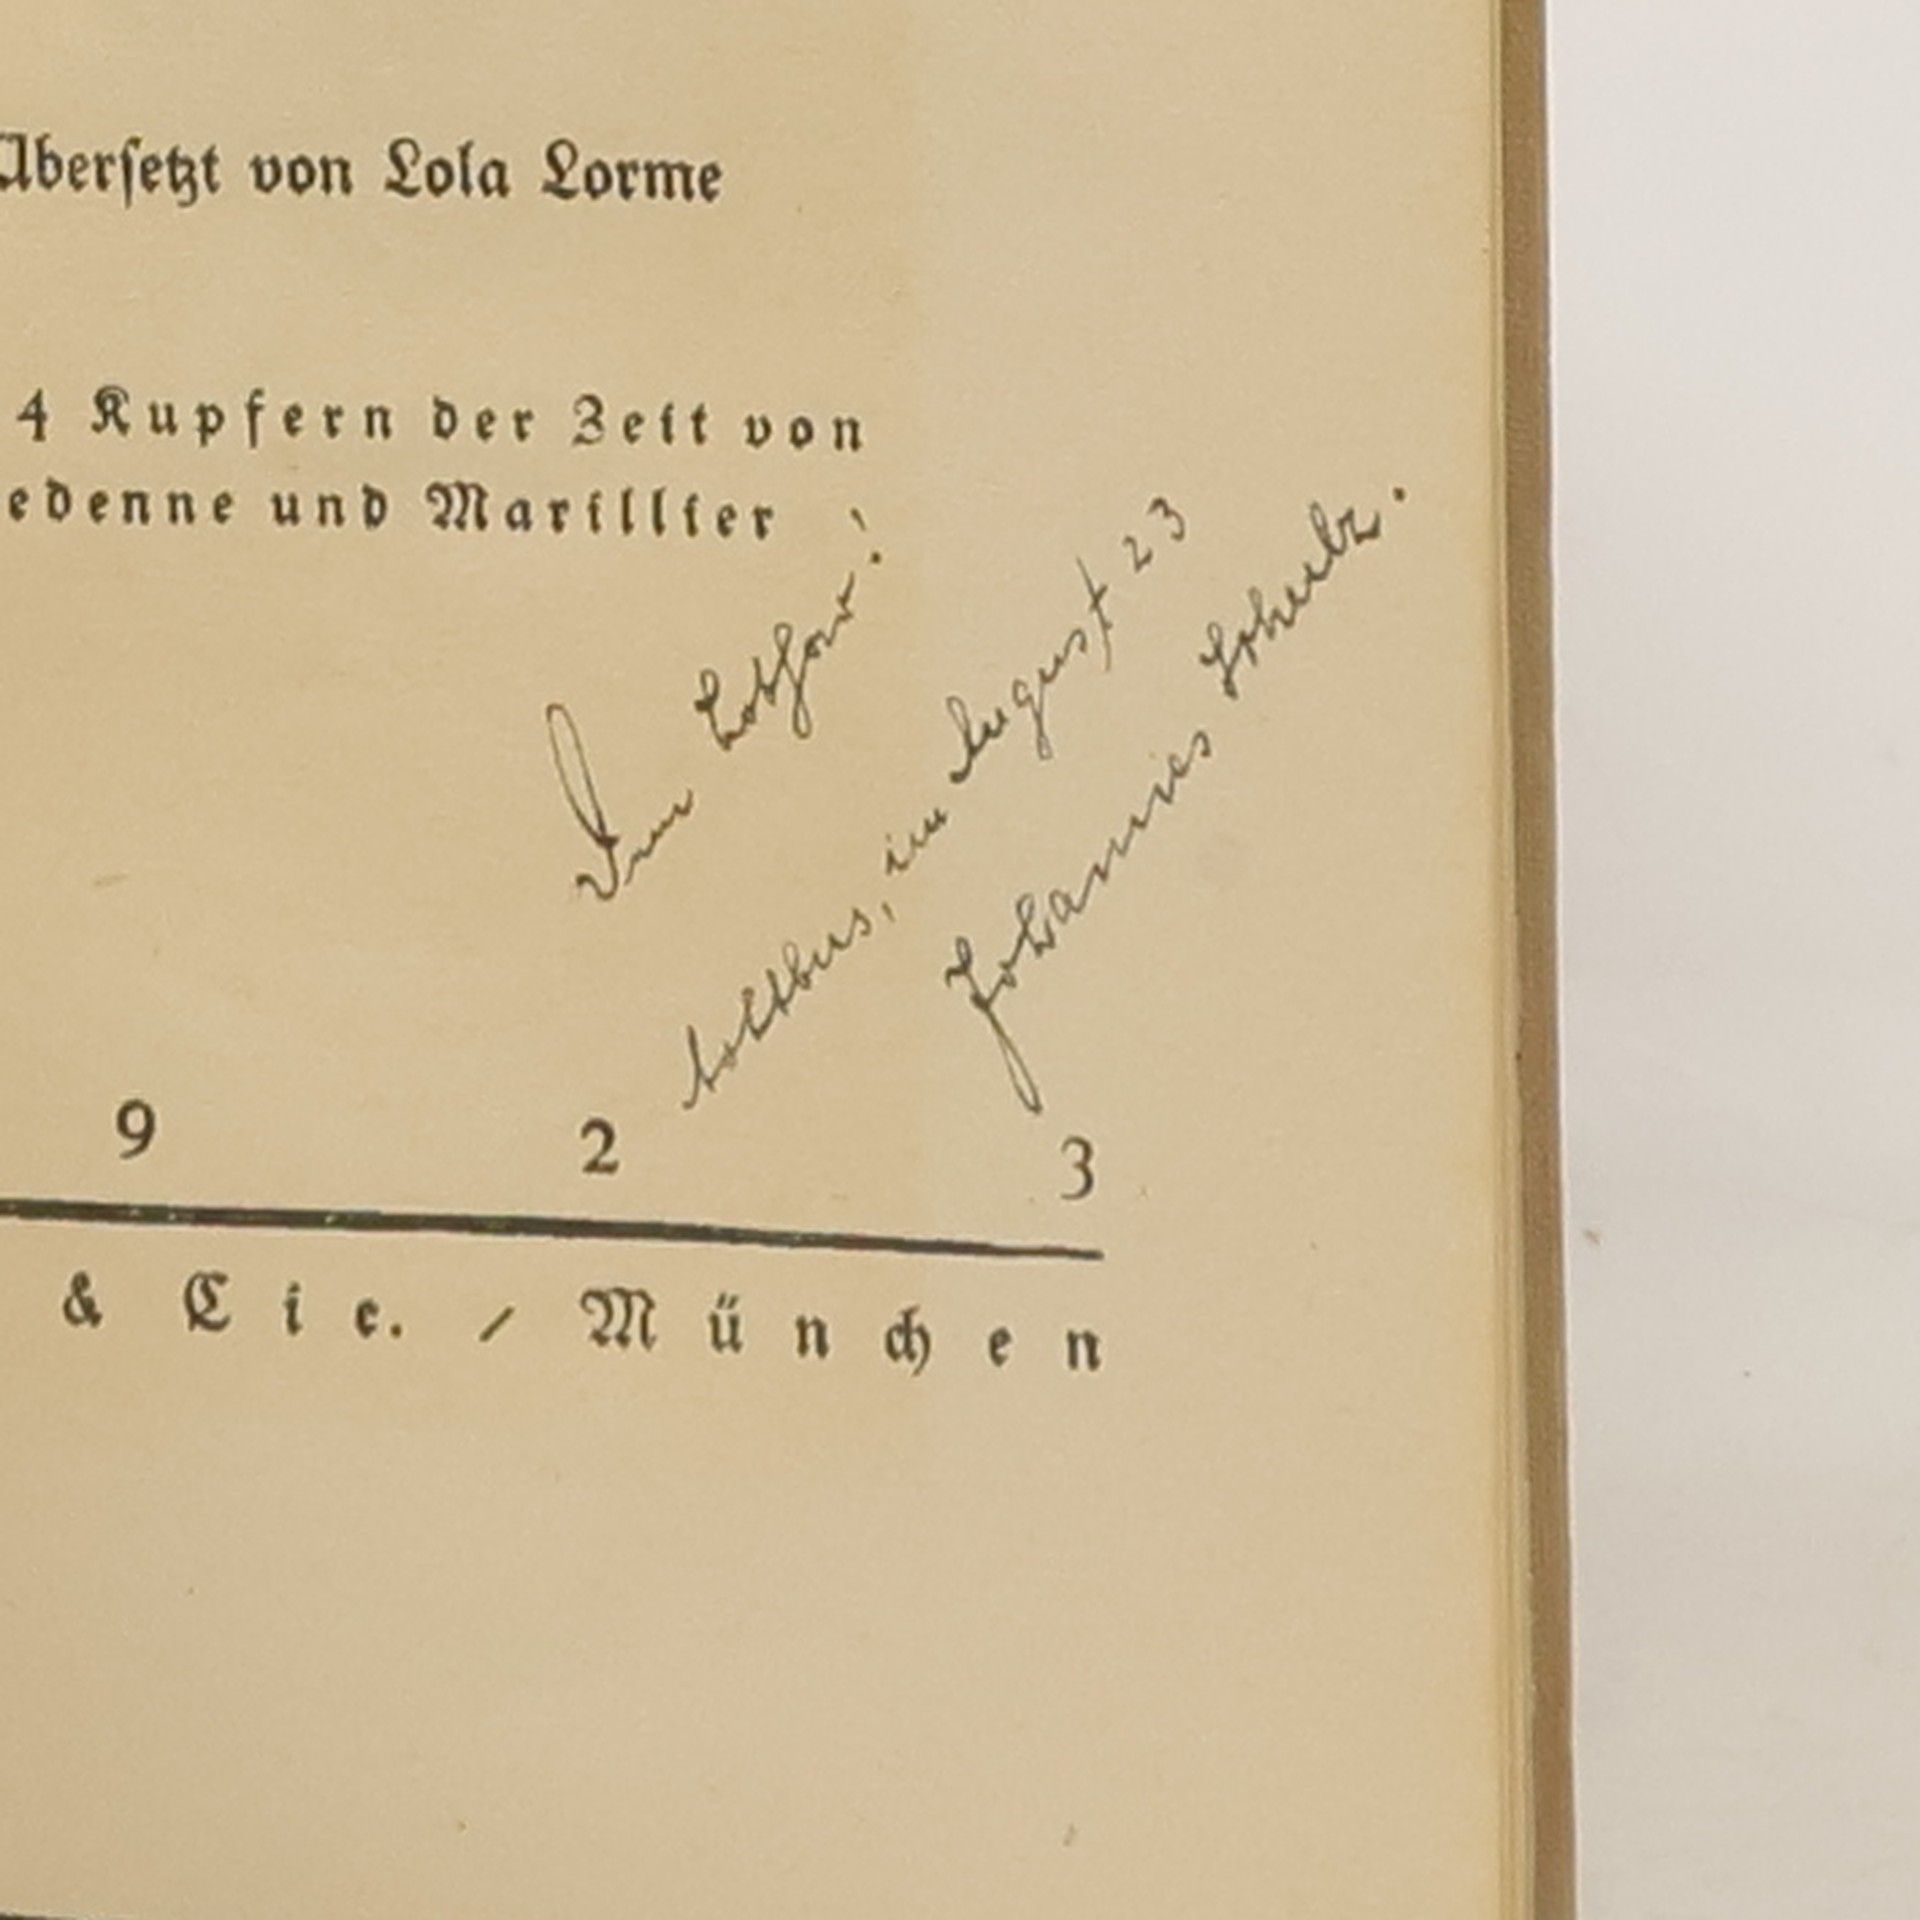 Übersetzt von Lola Lorme
4 Kupfern der Zeit von
edenne und Marillier
Cottbus, im August 23
Johannes Schultz.
9 2 3
& Cie. / München